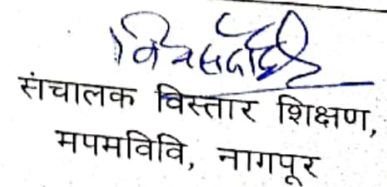 संचालक विस्तार शिक्षण,
मपमविवि, नागपूर